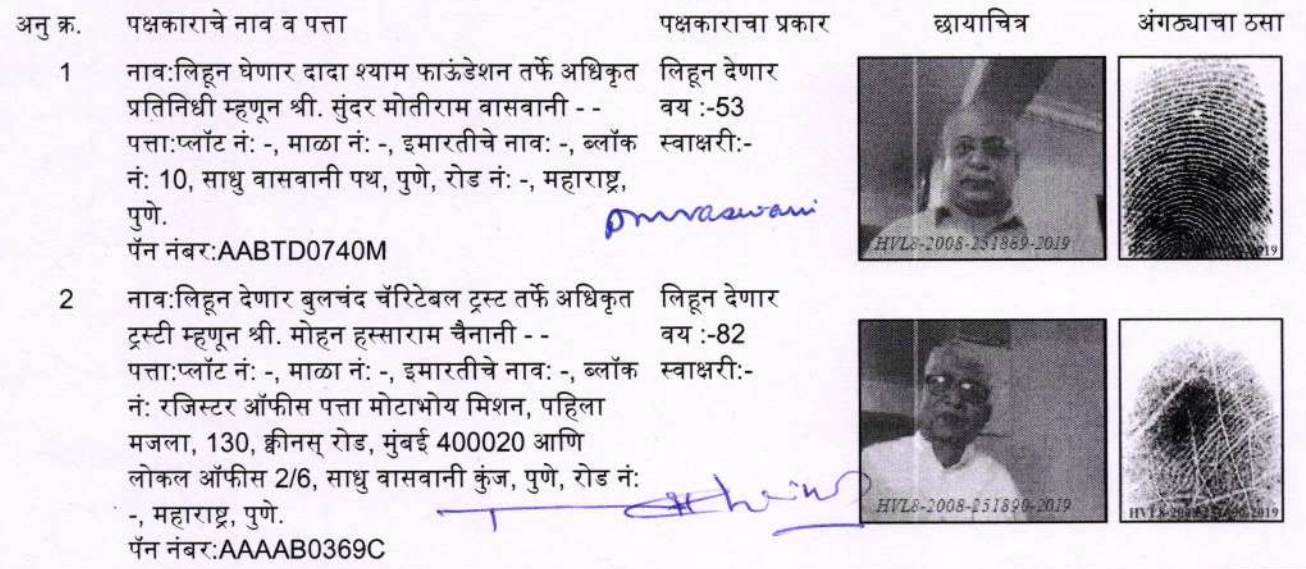 अनु क्र. पक्षकाराचे नाव व पत्ता पक्षकाराचा प्रकार छायाचित्र अंगठ्याचा ठसा
1 नाव:लिहून घेणार दादा श्याम फाऊंडेशन तर्फे अधिकृत लिहून देणार
प्रतिनिधी म्हणून श्री. सुंदर मोतीराम वासवानी - - वय :-53
पत्ता:प्लॉट नं: -, माळा नं: -, इमारतीचे नाव: -, ब्लॉक स्वाक्षरी:-
नं: 10, साधु वासवानी पथ, पुणे, रोड नं: -, महाराष्ट्र,
पुणे.
पॅन नंबर:AABTD0740M
HVL8-2008-251889-2019
2 नाव:लिहून देणार बुलचंद चॅरिटेबल ट्रस्ट तर्फे अधिकृत लिहून देणार
ट्रस्टी म्हणून श्री. मोहन हस्साराम चैनानी - - वय :-82
पत्ता:प्लॉट नं: -, माळा नं: -, इमारतीचे नाव: -, ब्लॉक स्वाक्षरी:-
नं: रजिस्टर ऑफीस पत्ता मोटाभोय मिशन, पहिला
मजला, 130, क्वीनस् रोड, मुंबई 400020 आणि
लोकल ऑफीस 2/6, साधु वासवानी कुंज, पुणे, रोड नं:
-, महाराष्ट्र, पुणे.
पॅन नंबर:AAAAB0369C
HVL8-2008-251890-2019